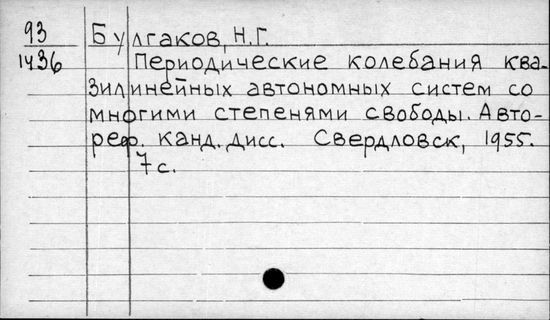 93
1436
Булгаков, Н.Г.
Периодические колебания ква-
зилинейных автономных систем со
многими степенями свободы. Авто-
реф. канд. дисс. Свердловск, 1955.
7 с.